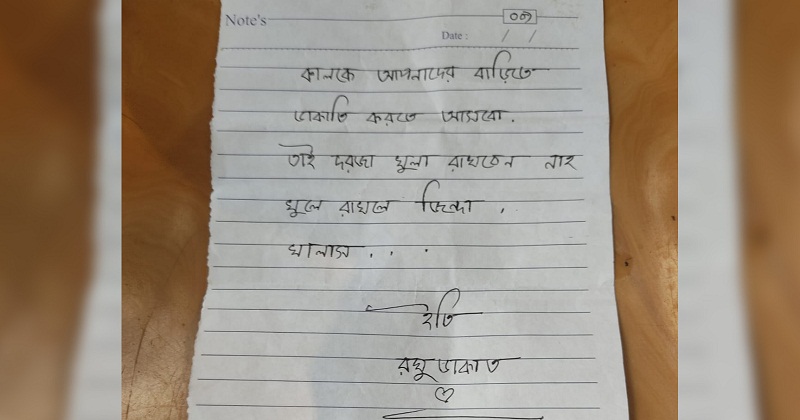 Note's
০৩
Date : / /
কালকে আপনাদের বাড়িতে
ডাকাতি করতে আসবো .
তাই দরজা খুলা রাখবেন নাহ
খুলে রাখলে জিন্দা .
খালাস . . .
ইতি
রঘু ডাকাত
♡